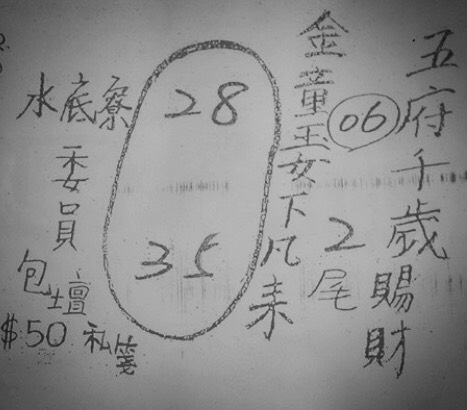 五府千歲賜財
06
2尾
金童玉女下凡來
28
35
水底寮
委員
包壇
$50 私簽